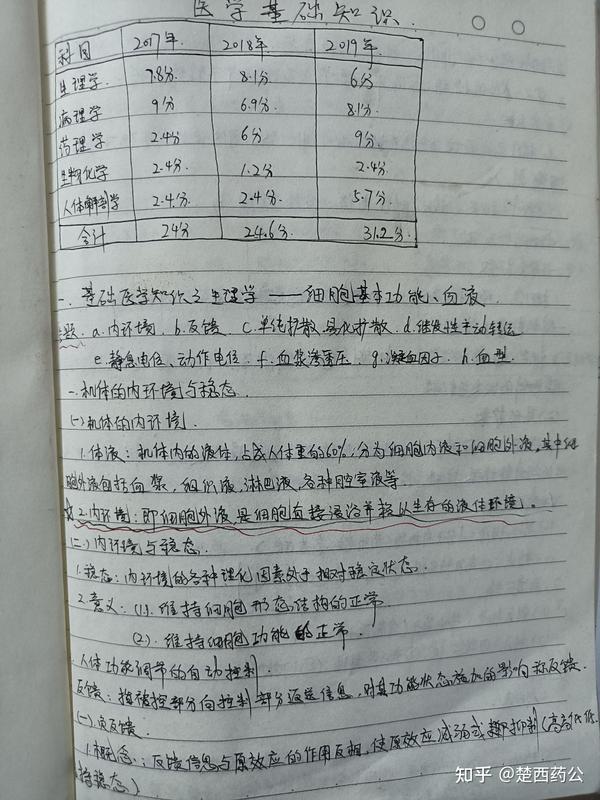 医学基础知识.
科目 2017年. 2018年. 2019年.
生理学 7.8分. 8.1分 6分
病理学 9分 6.9分. 8.1分.
药理学 2.4分 6分 9分.
生物化学 2.4分. 1.2分 2.4分.
人体解剖学 2.4分. 2.4分 5.7分.
合计 24分 24.6分. 31.2分.
一. 基础医学知识之生理学——细胞基本功能、血液
a.内环境. b.反馈. c.单纯扩散.易化扩散. d.继发性主动转运
e.静息电位、动作电位. f.血浆渗透压. g.凝血因子. h.血型.
一.机体的内环境与稳态.
(一)机体的内环境.
1.体液:机体内的液体,占成人体重的60%,分为细胞内液和细胞外液,其中细
胞外液包括血浆,组织液,淋巴液,各种腔室液等.
2.内环境:即细胞外液,是细胞直接浸浴并赖以生存的液体环境。
(二)内环境与稳态.
1.稳态:内环境的各种理化因素处于相对稳定状态.
2.意义:(1).维持细胞形态结构的正常
(2).维持细胞功能的正常.
人体功能调节的自动控制.
反馈:指被控部分向控制部分返送信息,对其功能状态施加的影响称反馈.
(一)负反馈.
1.概念:反馈信息与原效应的作用反相,使原效应减弱或抑制(高高低低
持稳态)
知乎 @楚西药公